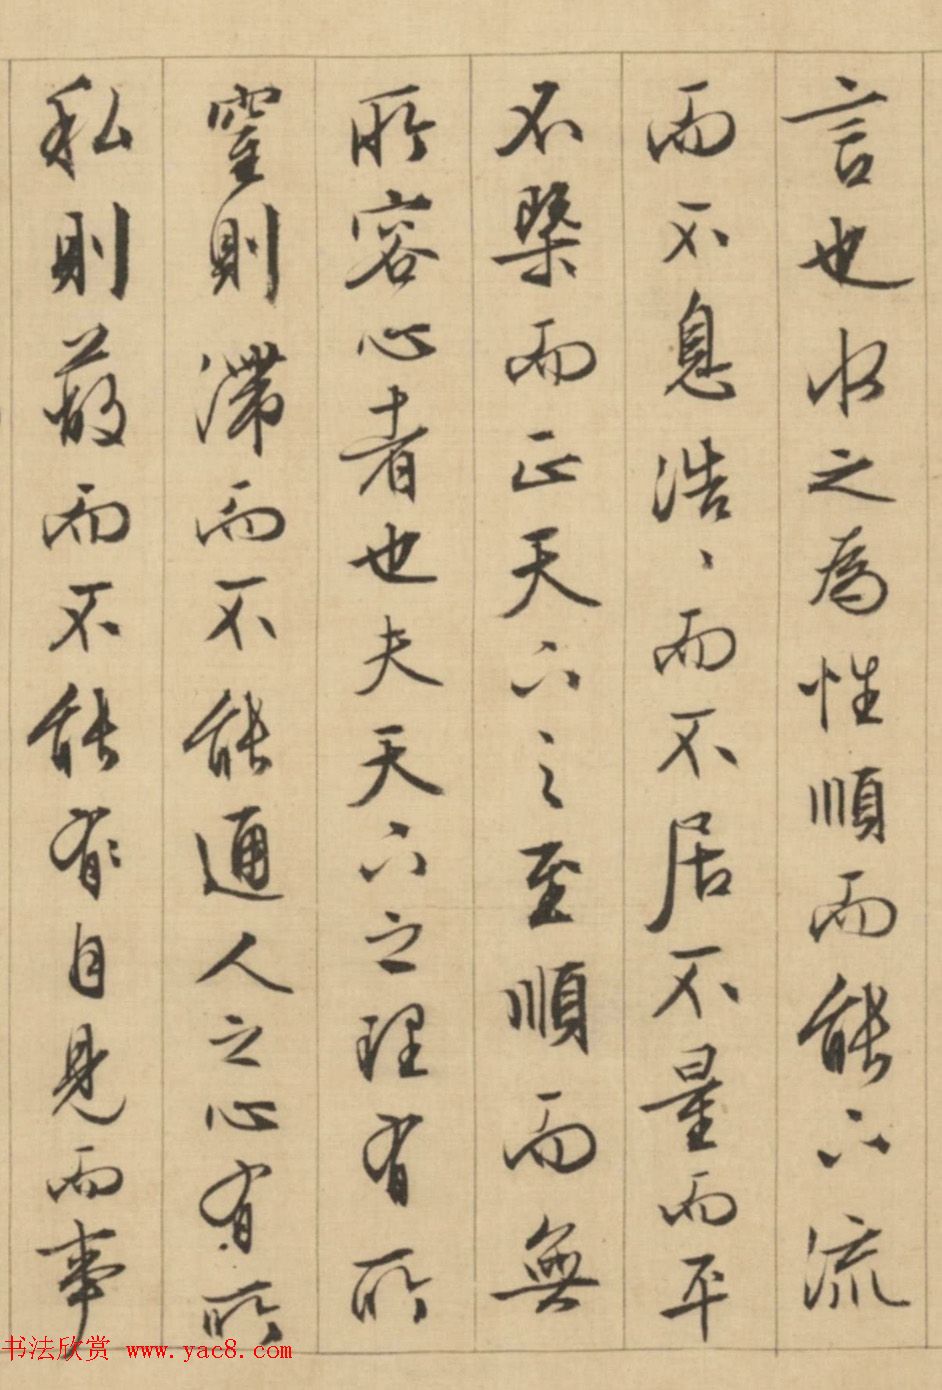 言也水之為性順而能下流
而不息浩、而不居不量而平
不槩而正天下之至順而無
所容心者也夫天下之理有所
窒則滯而不能通人之心有所
私則蔽而不能有自見而事
书法欣赏 www.yac8.com